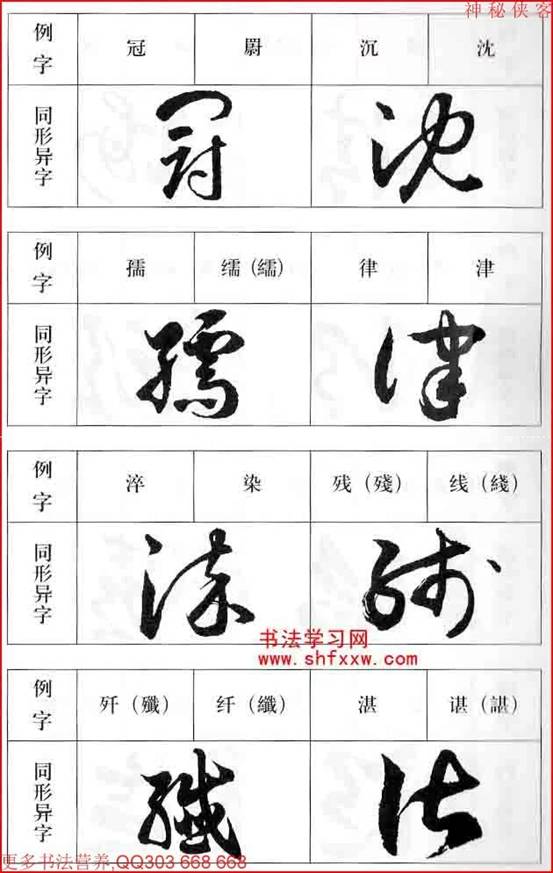 神秘侠客
例字 冠 罻 沉 沈
同形异字
例字 孺 繻（繻） 律 津
同形异字
例字 淬 染 残（殘） 线（綫）
同形异字
书法学习网
www.shfxxw.com
例字 歼（殲） 纤（纖） 湛 谌（諶）
同形异字
更多书法营养,QQ303 668 668